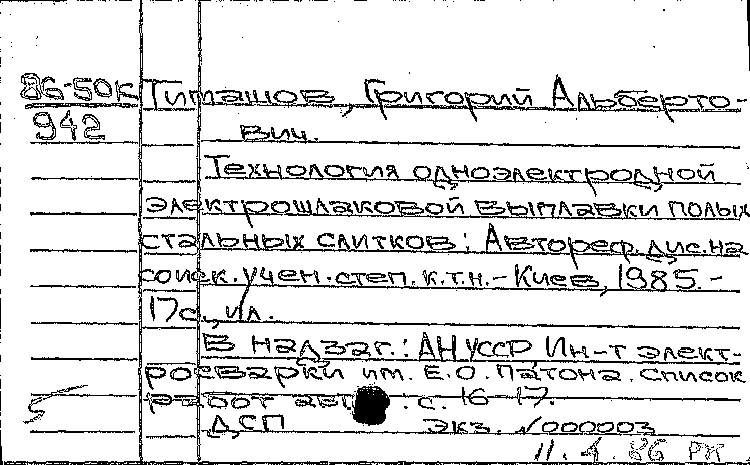 86-50к Тимашов, Григорий Альберто-
942 вич.
Технология одноэлектродной
электрошлаковой выплавки полых
стальных слитков: Автореф. дис. на
соиск. учен. степ. к.т.н. - Киев, 1985. -
17с., ил.
В надзаг.: АН УССР, Ин-т элект-
росварки им. Е.О. Патона. Список
работ авт. : с. 16-17.
ДСП экз. №000003
11. 4. 86 РК